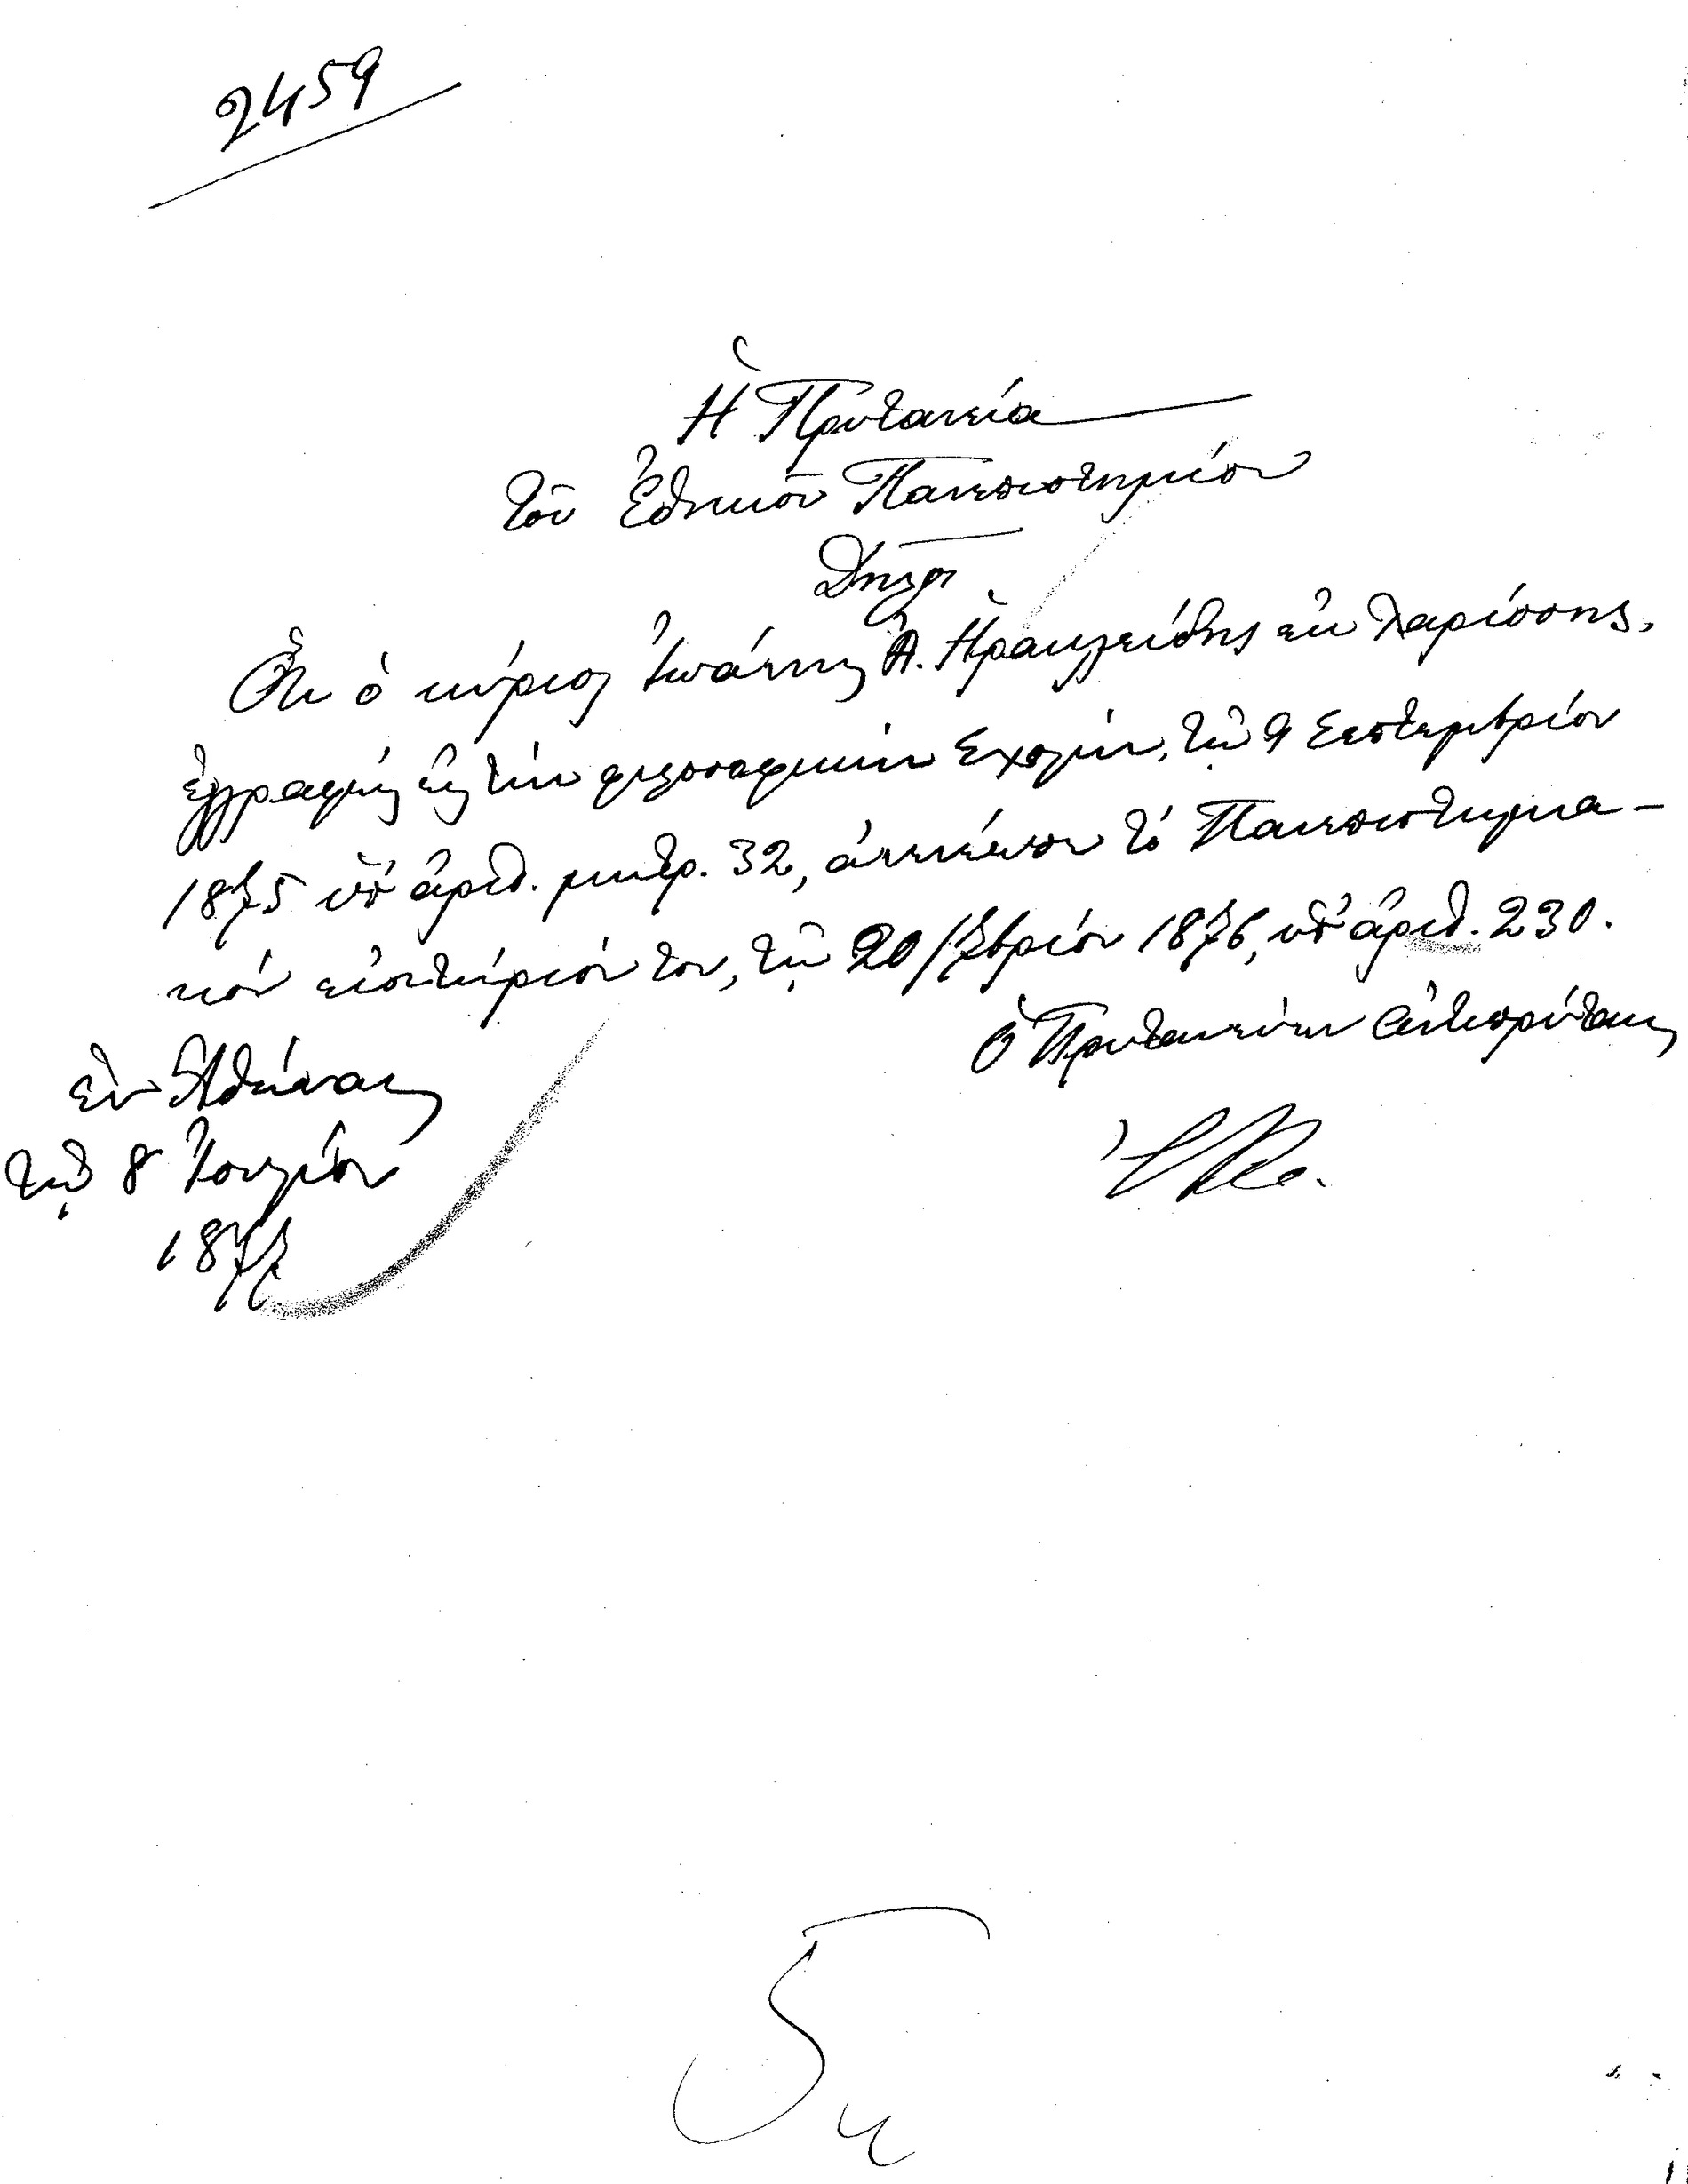 2459
Ἡ Πρυτανεία
Τοῦ Ἐθνικοῦ Πανεπιστημίου
Δηλοῖ
Ὅτι ὁ κύριος Ἰωάννης Α. Ἡρακλείδης ἐκ Λαρίσσης,
ἐγγραφείς εἰς τὴν φιλοσοφικὴν Σχολήν, τῇ 9 Σεπτεμβρίου
1875 ὑπ' ἀριθ. μητρ. 32, ἀνενέωσε τό Πανεπιστημια-
κόν εἰσιτήριόν του, τῇ 20 7βρίου 1876, ὑπ' ἀριθ. 230.
Ὁ Πρυτανεύων Ἀντιπρύτανις
ἐν Ἀθήναις
τῇ 8 Ἰουλίου
1877